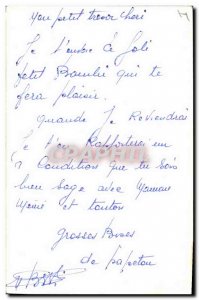 mon petit tresor cheri
Je t'envoie ce Joli
petit Bambi qui te
fera plaisir.
quand Je Reviendrai
Je t'en Rapporterai un
a Condition que tu sois
bien sage avec Maman
Mémé et tonton
Grosses Bises
de papeton